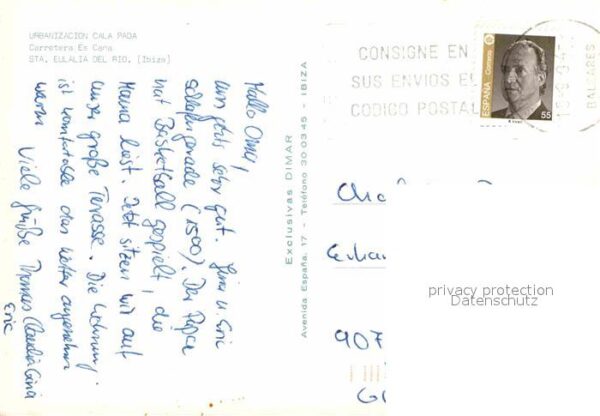 URBANIZACION CALA PADA
Carretera Es Cana
STA. EULALIA DEL RIO, (Ibiza)
Hallo Oma,
uns geht's sehr gut. Gina u. Eric
schlafen gerade (1500). Der Papa
hat Basketball gespielt, die
Mama liest. Jetzt sitzen wir auf
unserer große Terasse. Die Wohnung
ist komfortabel das Wetter angenehm
warm Viele Grüße Thomas Claudia Gina
Eric
Exclusivas DIMAR
Avenida. España, 17 - Teléfono 30 03 45 - IBIZA
CONSIGNE EN
SUS ENVIOS EL
CODIGO POSTAL
BALEARES
ESPAÑA
Correos
55
907
privacy protection
Datenschutz